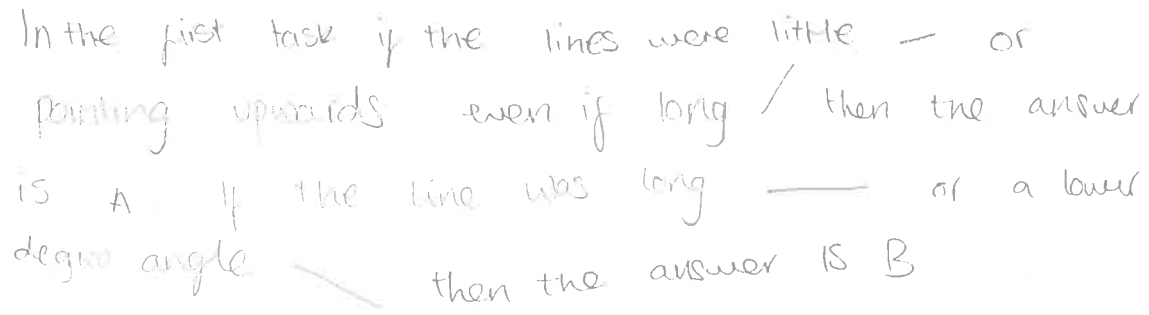 In the first task if the lines were little — or
pointing upwards even if long / then the answer
is A If the line was long —— or a lower
degree angle \ then the answer is B